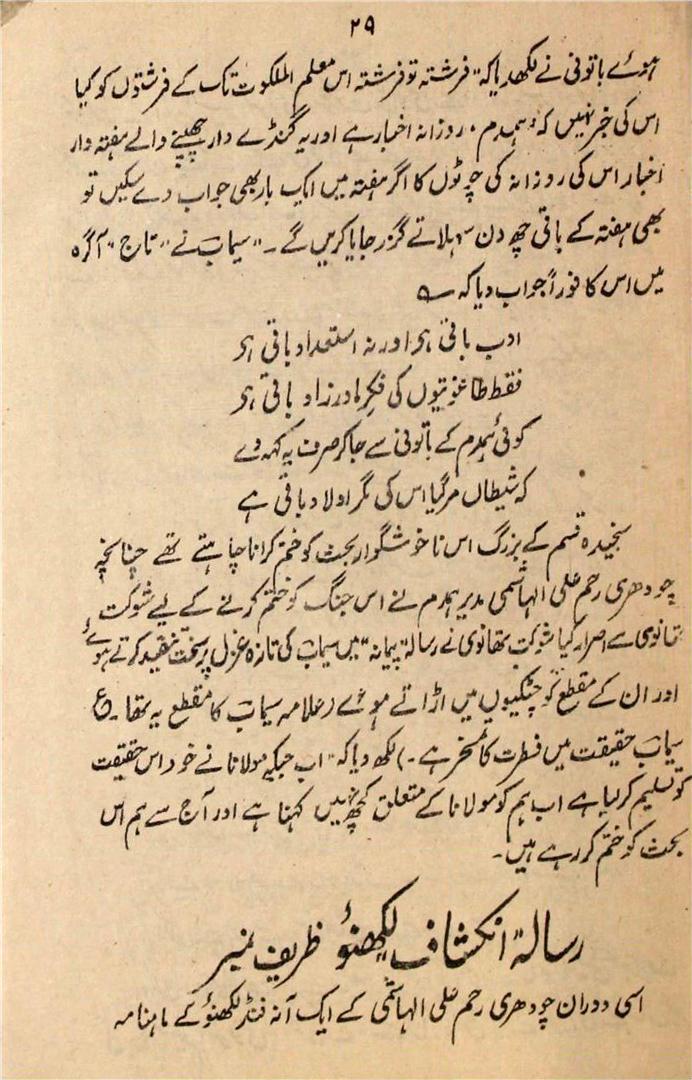 ۲۹
ہوئے باتونی نے لکھدیا کہ "فرشتہ تو فرشتہ اس معلم الملکوت تک کے فرشتوں کو کیا
اس کی خبر نہیں کہ "ہمدم" روزانہ اخبار ہے اور یہ گنڈے دار چھپنے والے ہفتہ وار
اخبار اس کی روزانہ کی چوٹوں کا اگر ہفتہ میں ایک بار بھی جواب دے سکیں تو
بھی ہفتہ کے باقی چھ دن سہلاتے گزر جایا کریں گے ۔" سیماب نے "تاج" آگرہ
میں اس کا فوراً جواب دیا کہ ؎
ادب باقی ہر اور نہ استعداد باقی ہر
فقط طاغوتیوں کی فکر مادر زاد باقی ہر
کوئی ہمدم کے باتونی سے جا کر صرف یہ کہہ دے
کہ شیطاں مر گیا اس کی مگر اولاد باقی ہے
سنجیدہ قسم کے بزرگ اس ناخوشگوار بحث کو ختم کرانا چاہتے تھے چنانچہ
چودھری رحم علی الہاشمی مدیر ہمدم نے اس جنگ کو ختم کرنے کے لیے شوکت
تھانوی سے اصرار کیا شوکت تھانوی نے رسالہ "پیمانہ" میں سیماب کی تازہ غزل پر سخت تنقید کرتے ہوئے
اور ان کے مقطع کو چٹکیوں میں اڑاتے ہوئے (علامہ سیماب کا مقطع یہ تھا ۔ ع
سیماب حقیقت میں فطرت کا تمسخر ہے ۔) لکھ دیا کہ "اب جبکہ مولانا نے خود اس حقیقت
کو تسلیم کر لیا ہے اب ہم کو مولانا کے متعلق کچھ نہیں کہنا ہے اور آج سے ہم اس
بحث کو ختم کر رہے ہیں ۔
رسالہ انکشاف لکھنؤ ظریف نمبر
اسی دوران چودھری رحم علی الہاشمی کے ایک آنہ فنڈ لکھنؤ کے ماہنامہ